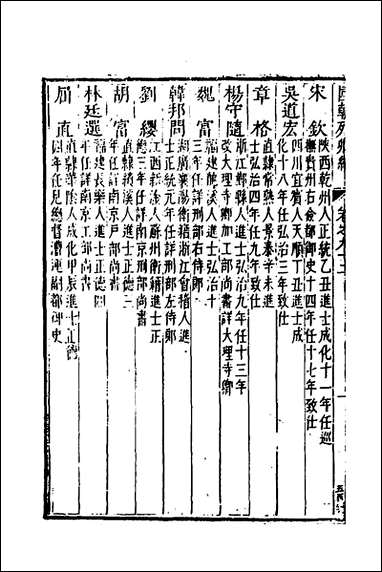 國朝列卿紀
宋欽
陝西乾州人正統乙丑進士成化十一年任巡
撫貴州右僉都御史十四年任十七年致仕
吳道宏
四川宜賓人天順丁丑進士成
化十八年任弘治三年致仕
章格
直隸常熟人景泰辛未進
士弘治四年任九年致仕
楊守隨
浙江鄞縣人進士弘治九年任十三年
改大理寺卿加工部尚書詳大理寺卿
魏富
福建龍溪人進士弘治十
三年任詳刑部右侍郎
韓邦問
湖廣襄陽衛籍浙江會稽人進
士正統元年任詳刑部左侍郎
劉纓
江西新淦人蘇州衛籍進士正
德三年任詳南京刑部尚書
胡富
直隸績溪人進士正德三
年任詳南京戶部尚書
林廷選
福建長樂人進士正德四
年任詳南京工部尚書
屈直
直隸華陰人成化甲辰進士正德
四年任見總督漕運副都御史